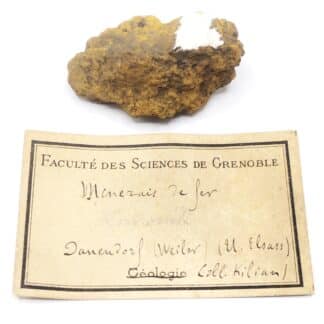 FACULTÉ DES SCIENCES DE GRENOBLE
Minerais de fer
Dauendorf (Weiler) (U. Elsass)
Géologie Coll. Kilian